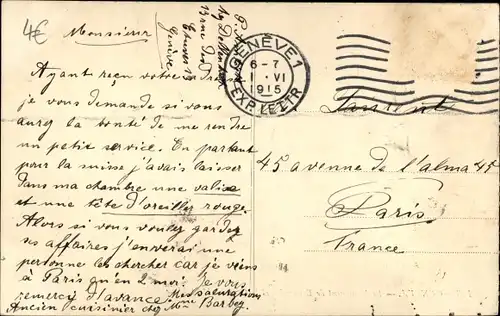 4€
Monsieur
13 rue des
Etuves 13
Genève
GENÈVE 1
6-7
1 VI
1915
EXP. LETTR.
Ayant reçu votre
je vous demande si vous
aurez la bonté de me rendre
un petit service. En partant
pour la suisse j'avais laisser
dans ma chambre une valise
et une tête d'oreiller rouge.
Alors si vous voulez garder
ses affaires j'enverai une
personne les chercher car je viens
à Paris qu'en 2 moi. je vous
remerci d'avance Mes salutations
Ancien cuisinier chez Mme Barbey
45 avenue de l'alma 45
Paris
France